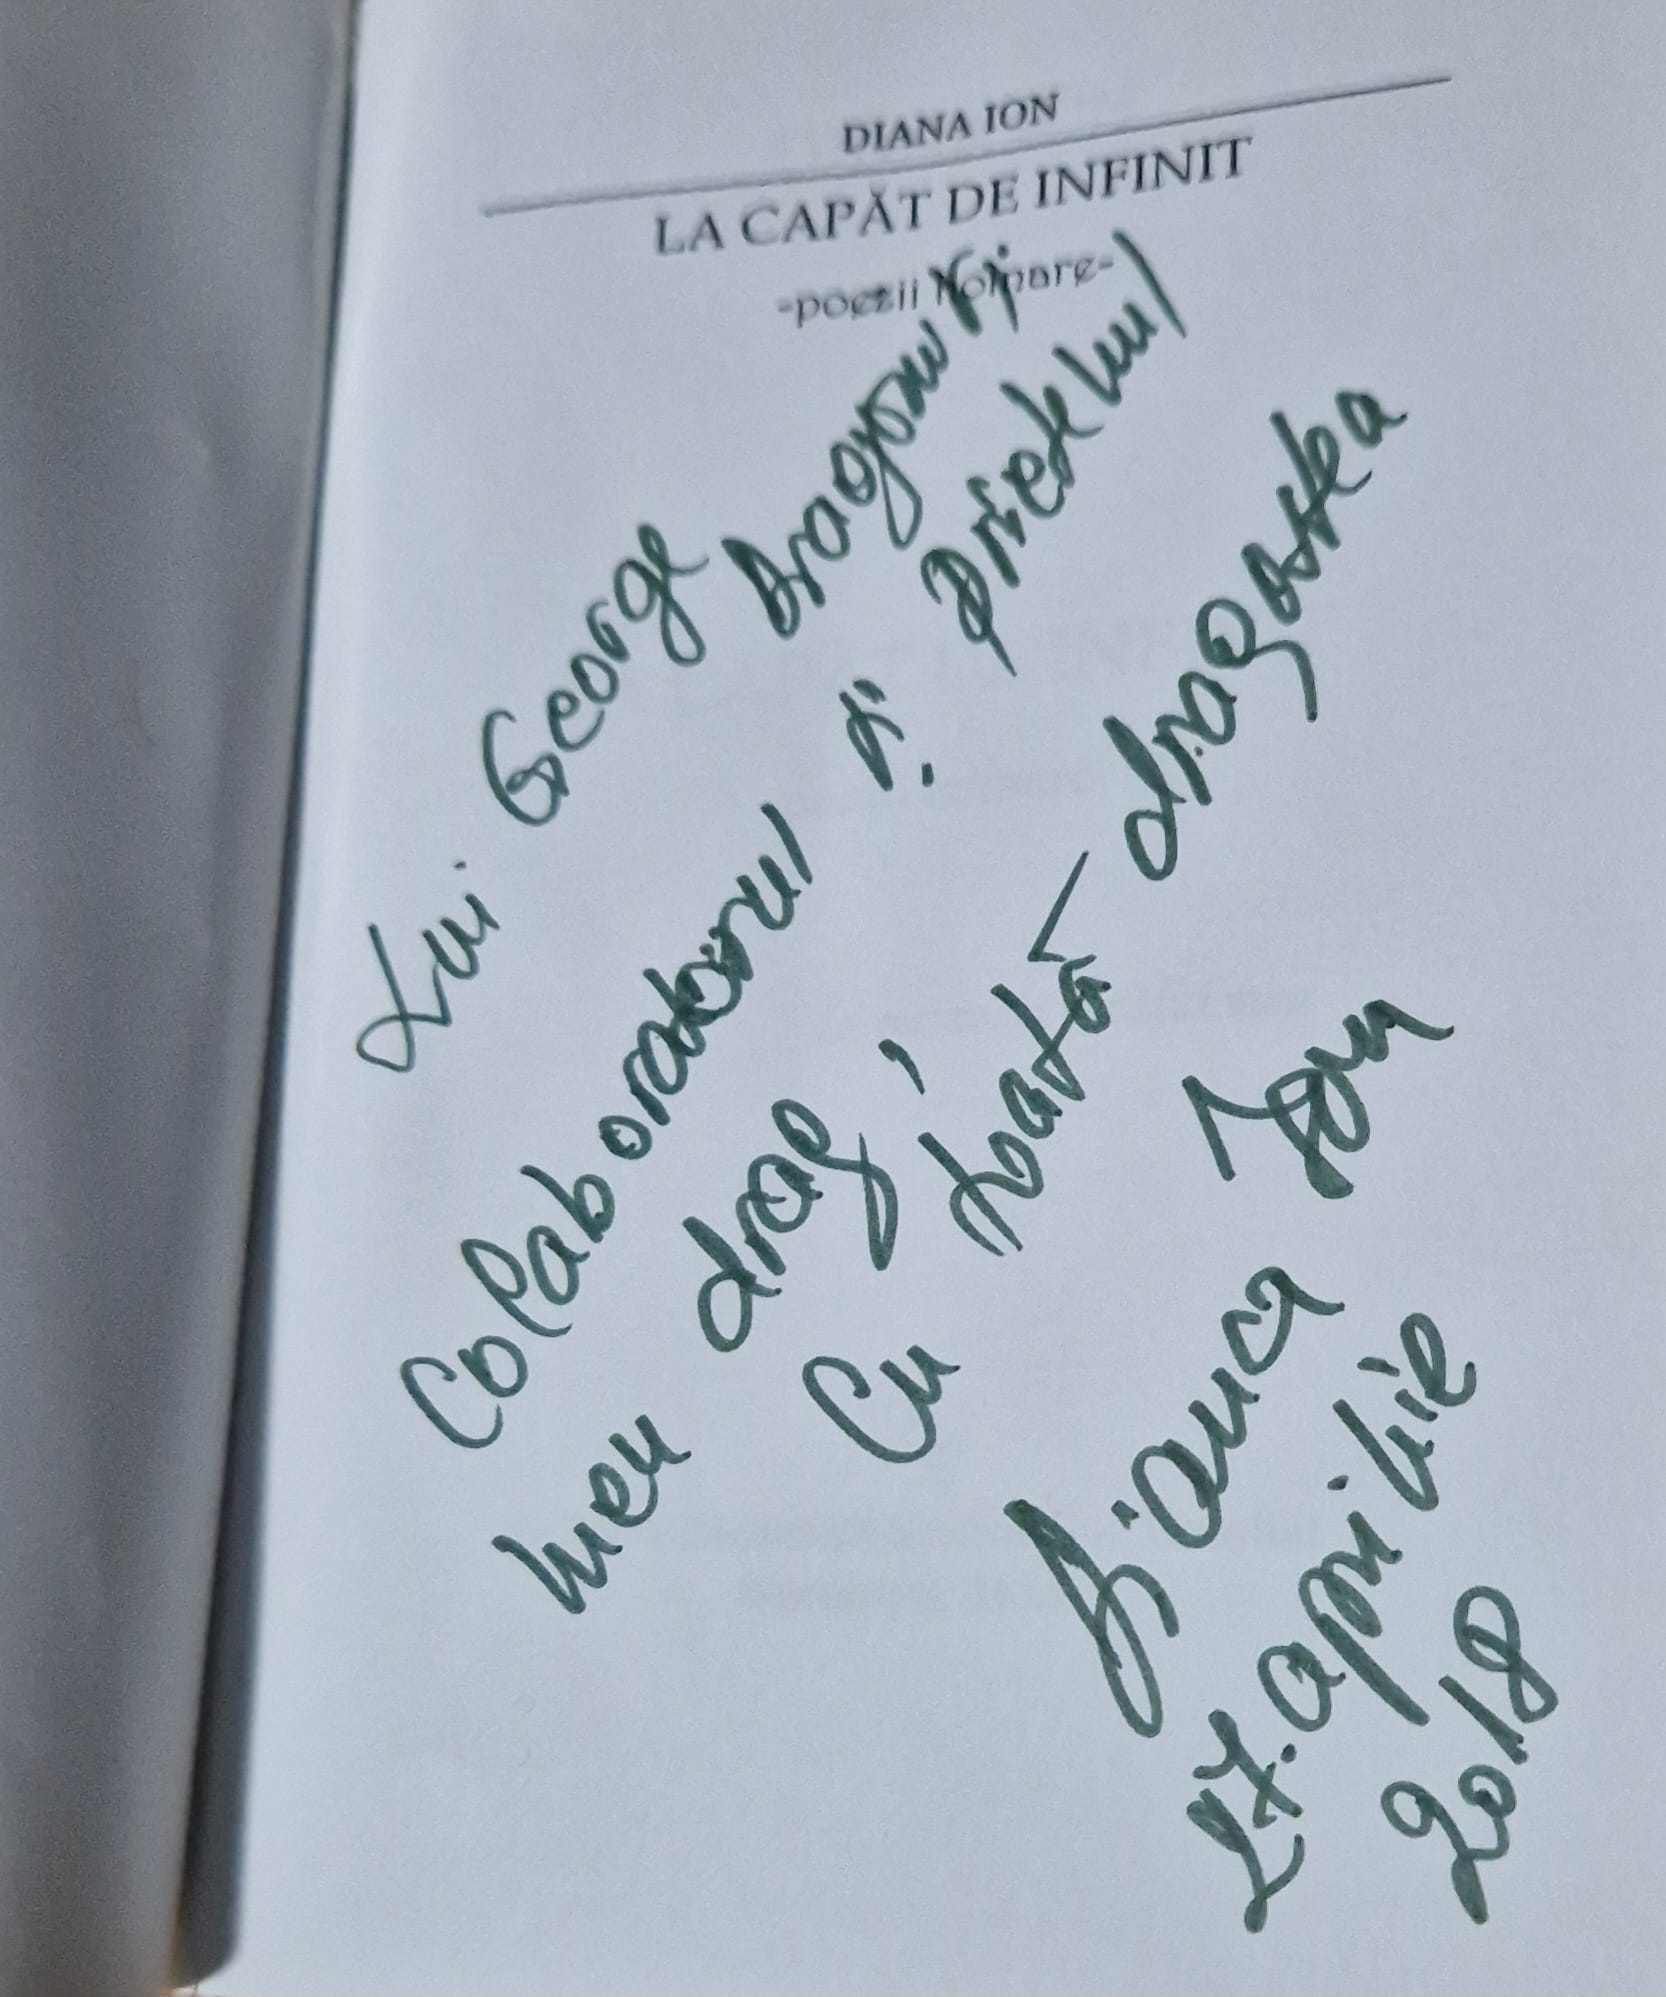 DIANA ION
LA CAPĂT DE INFINIT
-poezii hoinare-
Lui George
Colaboratorul și prietenul
meu drag,
Cu toată dragostea
Bianca Ion
27.aprilie
2018